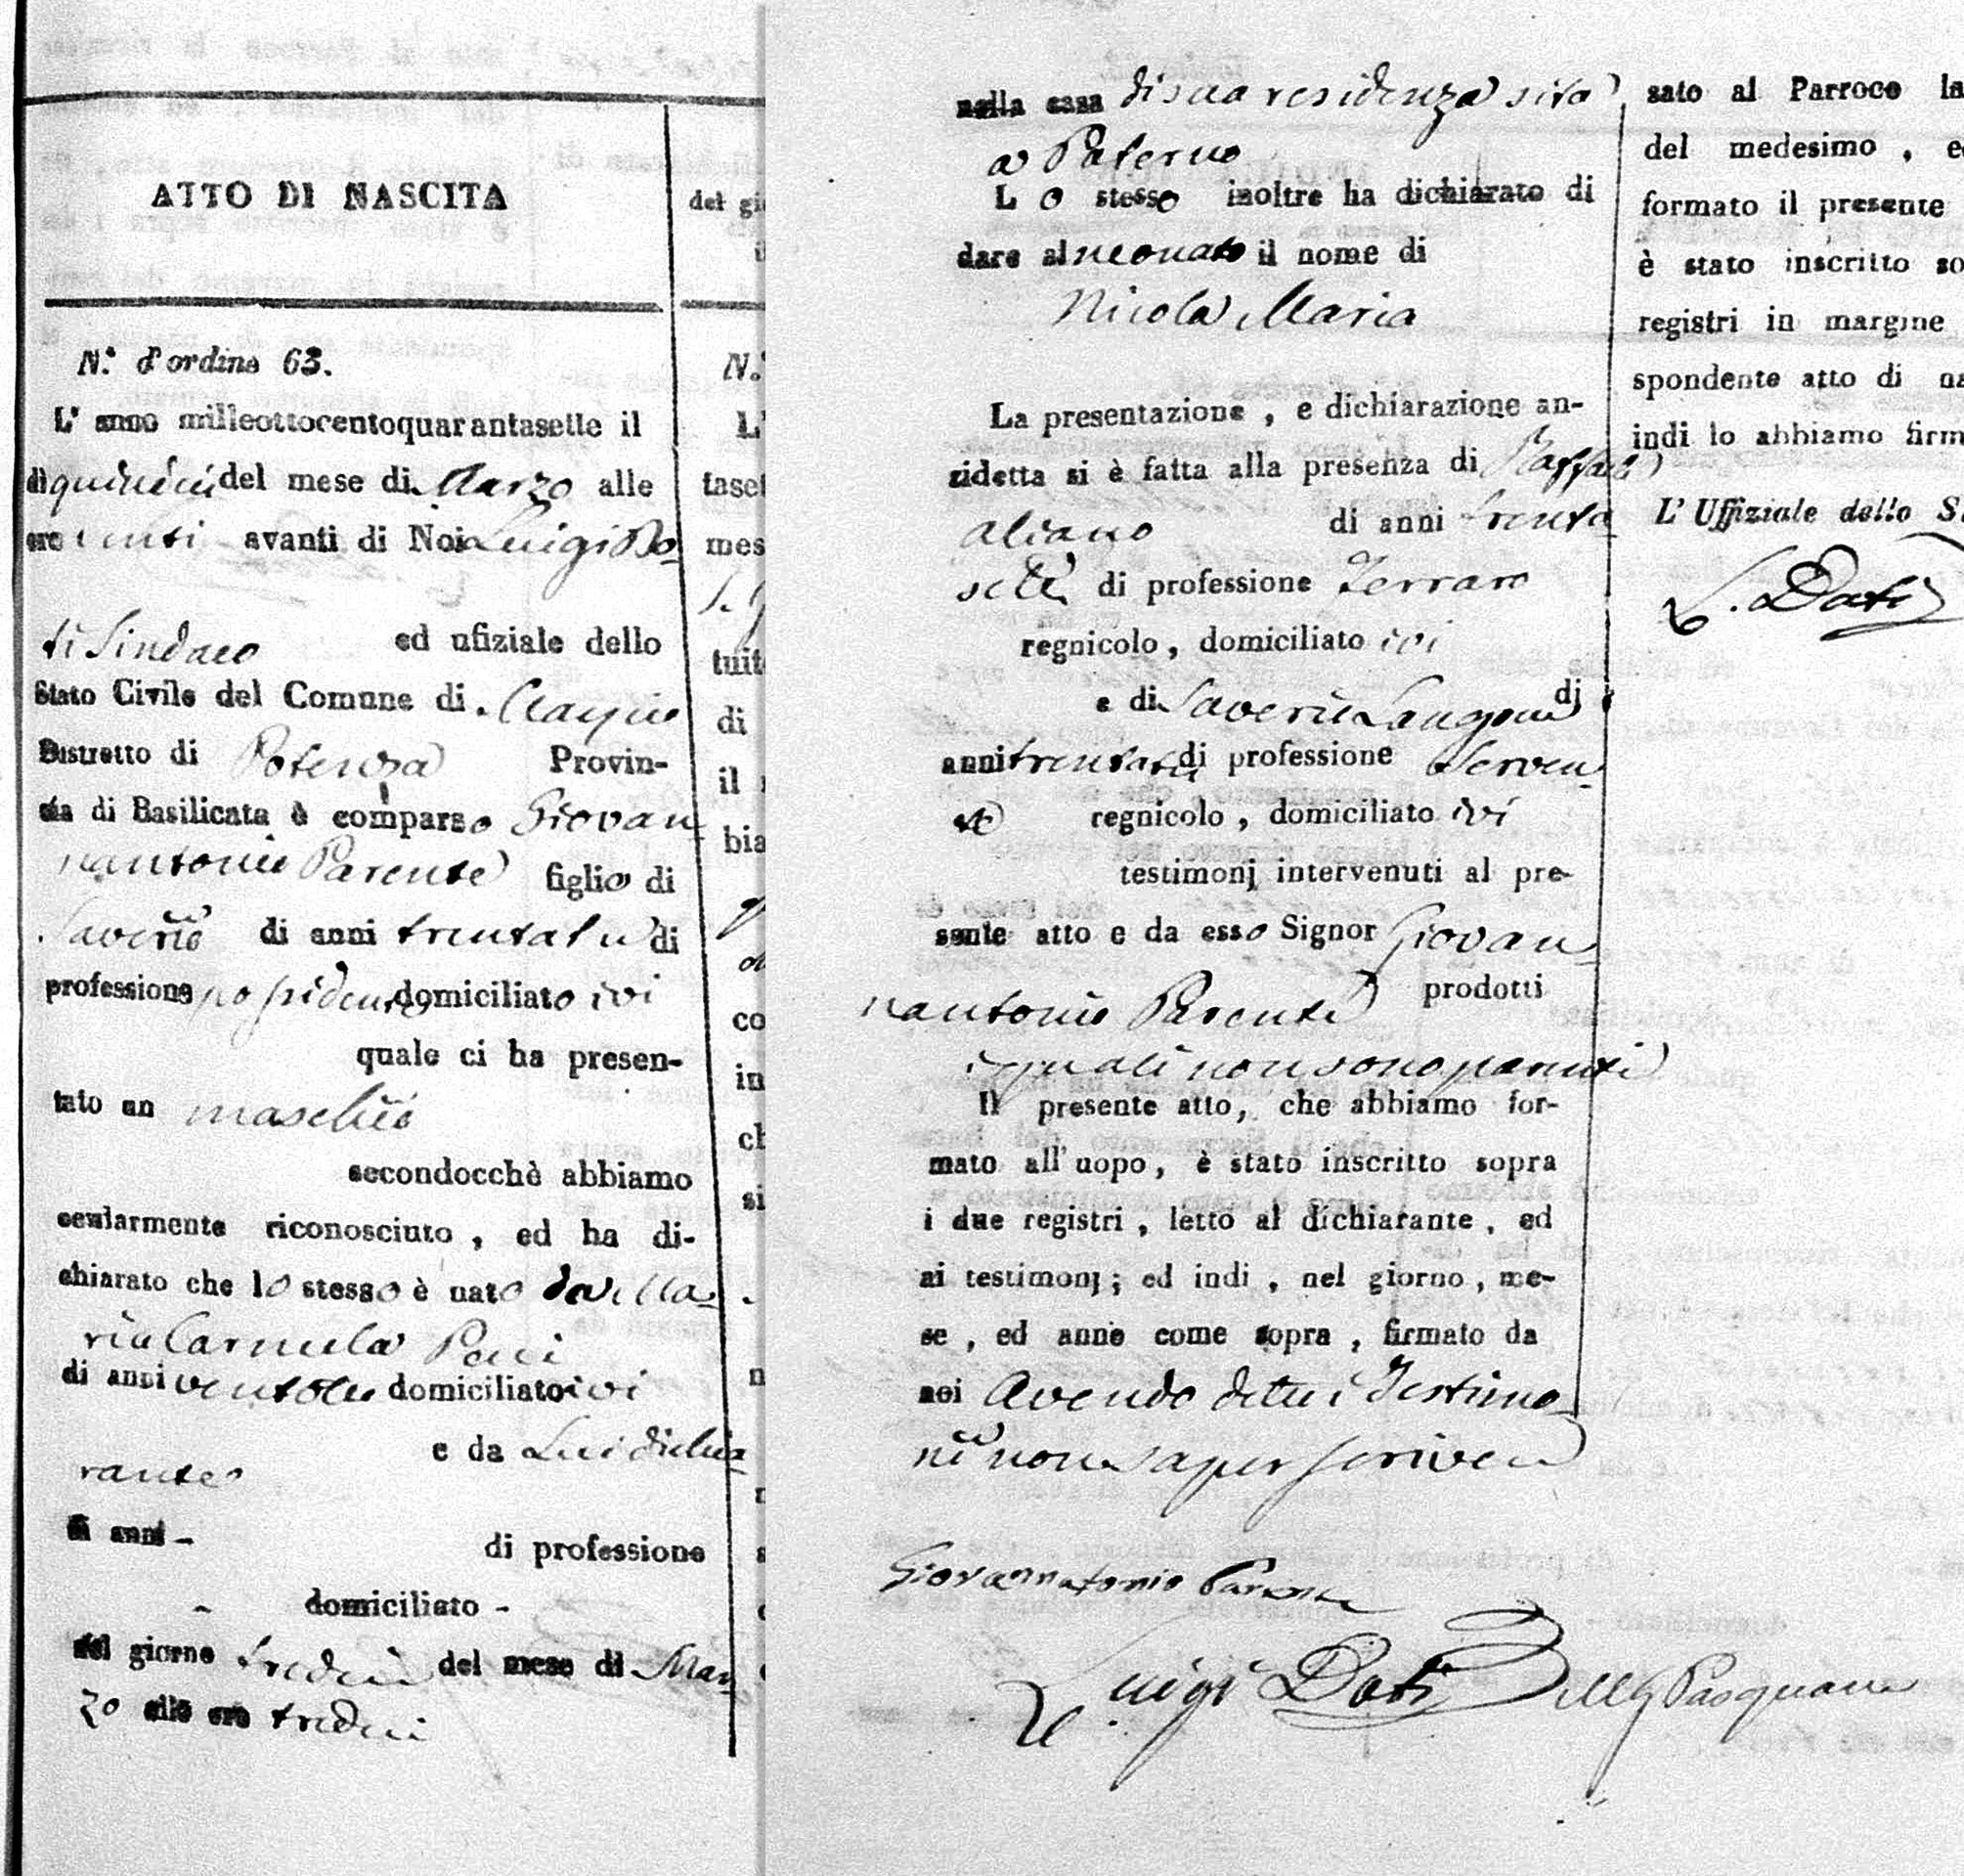 ATTO DI NASCITA
N.° d'ordine 63.
L' anno milleottocentoquarantasette il
dì quindici del mese di Marzo alle
ore venti avanti di Noi Luigi Do=
ti Sindaco ed ufiziale dello
Stato Civile del Comune di
Distretto di Potenza Provin-
cia di Basilicata è comparso Giovan
nantonio Parente figlio di
Saverio di anni trentatre di
professione possidente domiciliato ivi
quale ci ha presen-
tato un maschio
secondocchè abbiamo
ocularmente riconosciuto, ed ha di-
chiarato che lo stesso è nato da Ma=
ria Carmela
di anni domiciliato ivi
e da Lui dichia=
rante
di anni - di professione
- domiciliato -
del giorno tredici del mese di Mar
zo alle ore tredici
nella casa di sua residenza sita
a Paterno
Lo stesso inoltre ha dichiarato di
dare al neonato il nome di
Nicola Maria
La presentazione, e dichiarazione an-
zidetta si è fatta alla presenza di Raffaele
Aliano di anni trenta
sette di professione Ferraro
regnicolo, domiciliato ivi
e di Saverio Langone di
anni di professione Serven=
te regnicolo, domiciliato ivi
testimonj intervenuti al pre-
sente atto e da esso Signor Giovan=
nantonio Parente prodotti
i quali non sono parenti
Il presente atto, che abbiamo for-
mato all'uopo, è stato inscritto sopra
i due registri, letto al dichiarante, ed
ai testimonj; ed indi, nel giorno, me-
se, ed anno come sopra, firmato da
noi Avendo detto i Testimo=
nii non saper scrivere
Giovannantonio Parente
Luigi Doti
sato al Parroco la
del medesimo, e
formato il presente
è stato inscritto so
registri in margine
spondente atto di na
indi lo abbiamo firm
L' Uffiziale dello S
L. Doti